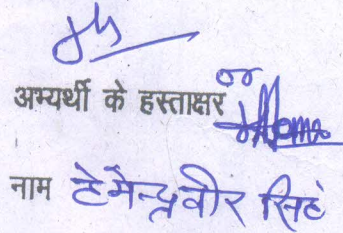 अभ्यर्थी के हस्ताक्षर
नाम टेमेन्द्रवीर सिहं